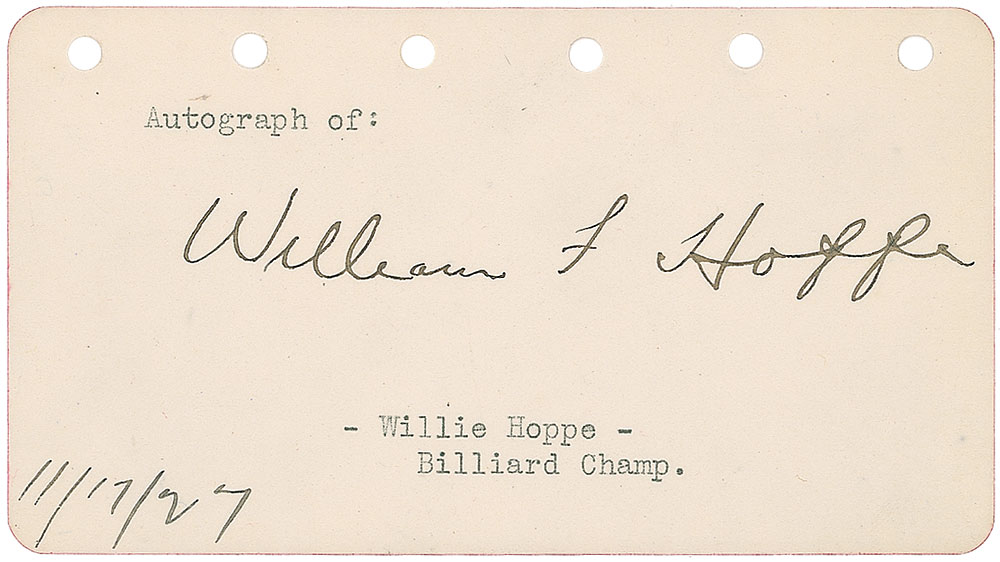 Autograph of:
William F Hoppe
- Willie Hoppe -
Billiard Champ.
11/17/27